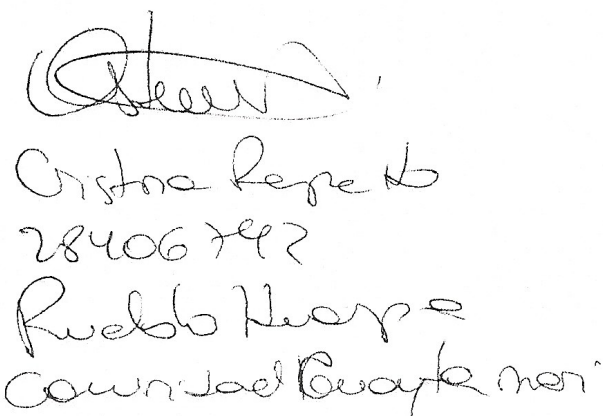 Cristina Repetto
28406742
Pueblo Huarpe
Comunidad Guaytamari